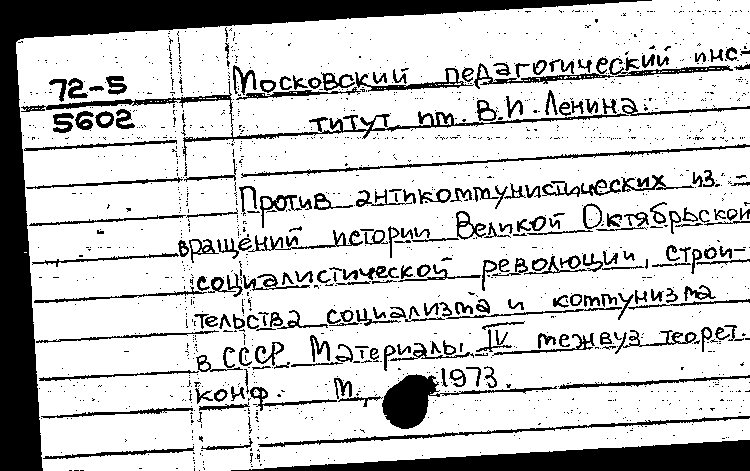 72-5
5602
Московский педагогический инс-
титут им. В.И. Ленина.
Против антикоммунистических из-
вращений истории Великой Октябрьской
социалистической революции, строи-
тельства социализма и коммунизма
в СССР. Материалы IV межвуз теорет.
конф. М, 1973.